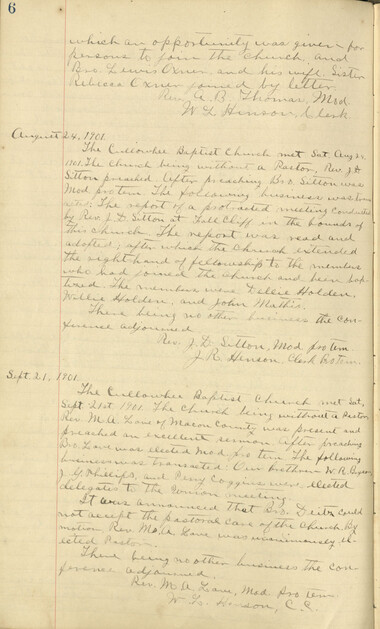 6
which an opportunity was given for
persons to join the church, and
Bro. Lewis Oxner and his wife, Sister
Rebecca Oxner joined by letter.
Rev. A. B. Thomas, Mod
W. L. Henson, Clerk
August 24, 1901.
The Cullowhee Baptist Church met Sat. Aug 24
1901. The Church being without a Pastor, Rev. J. D.
Sitton preached. After preaching Bro. Sitton was
Mod pro tem. The following business was
The report of a protracted meeting conducted
by Rev. J. D. Sitton at Tall Cliff in the bounds of
this church. The report was read and
adopted; after which the Church extended
the right hand of fellowship to the members
who had joined the church and been bap-
tized. The members were Dellie Holden,
Willie Holden, and John Mathis.
There being no other business the con-
ference adjourned.
Rev. J. D. Sitton, Mod pro tem
J. R. Henson, Clerk Pro tem.
Sept. 21, 1901.
The Cullowhee Baptist Church met Sat.
Sept. 21st 1901. The Church being without a Pastor
Rev. M. A. Love of Macon County was present and
preached an excellent sermon. After preaching
Bro. Love was elected Mod pro tem. The following
business was transacted. Our brethren W. R.
J. G. Phillips, and Perry Coggins were elected
delegates to the Union meeting.
It was announced that Bro. Deitz could
not accept the pastoral care of the church. By
motion Rev. M. A. Love was unanimously el-
ected Pastor.
There being no other business the con-
ference adjourned.
Rev. M. A. Love, Mod. Pro tem
W. L. Henson, C. C.